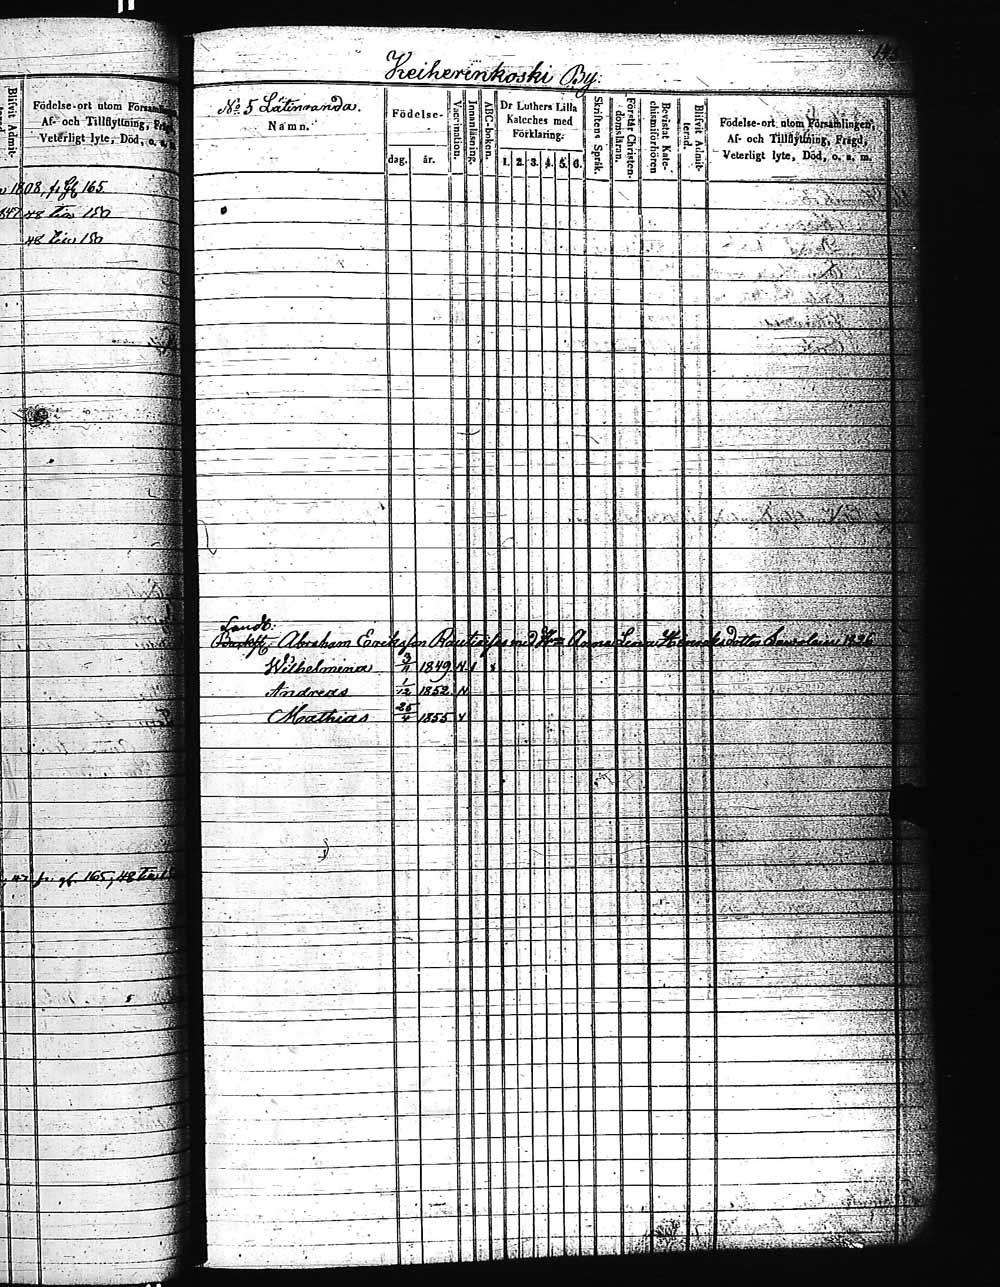 Blifvit Admit-
Födelse-ort utom Församlin
Af- och Tillflyttning,
Veterligt lyte, Död, o. s. m.
1808, fr Gf 165
847 48 150
48 150
47 fr. gf. 165, 48
Keiherinkoski By.
No 5 Låtinranda.
Namn.
Födelse-
dag.
år.
Vaccination.
Innanläsning.
ABC-boken.
Dr Luthers Lilla
Kateches med
Förklaring:
1. 2. 3. 4. 5. 6.
Skriftens Språk.
Förstår Christen-
domsläran.
Bevistat Kate-
chismiförhören
Blifvit Admit-
terad.
Födelse-ort utom Församlingen,
Af- och Tillflyttning, Frägd,
Veterligt lyte, Död, o. s. m.
Landb.
Abraham Ericksson med Anna Lena 1826
Wilhelmina 3/11 1849
Andreas 1/12 1852
Mathias 25/4 1855